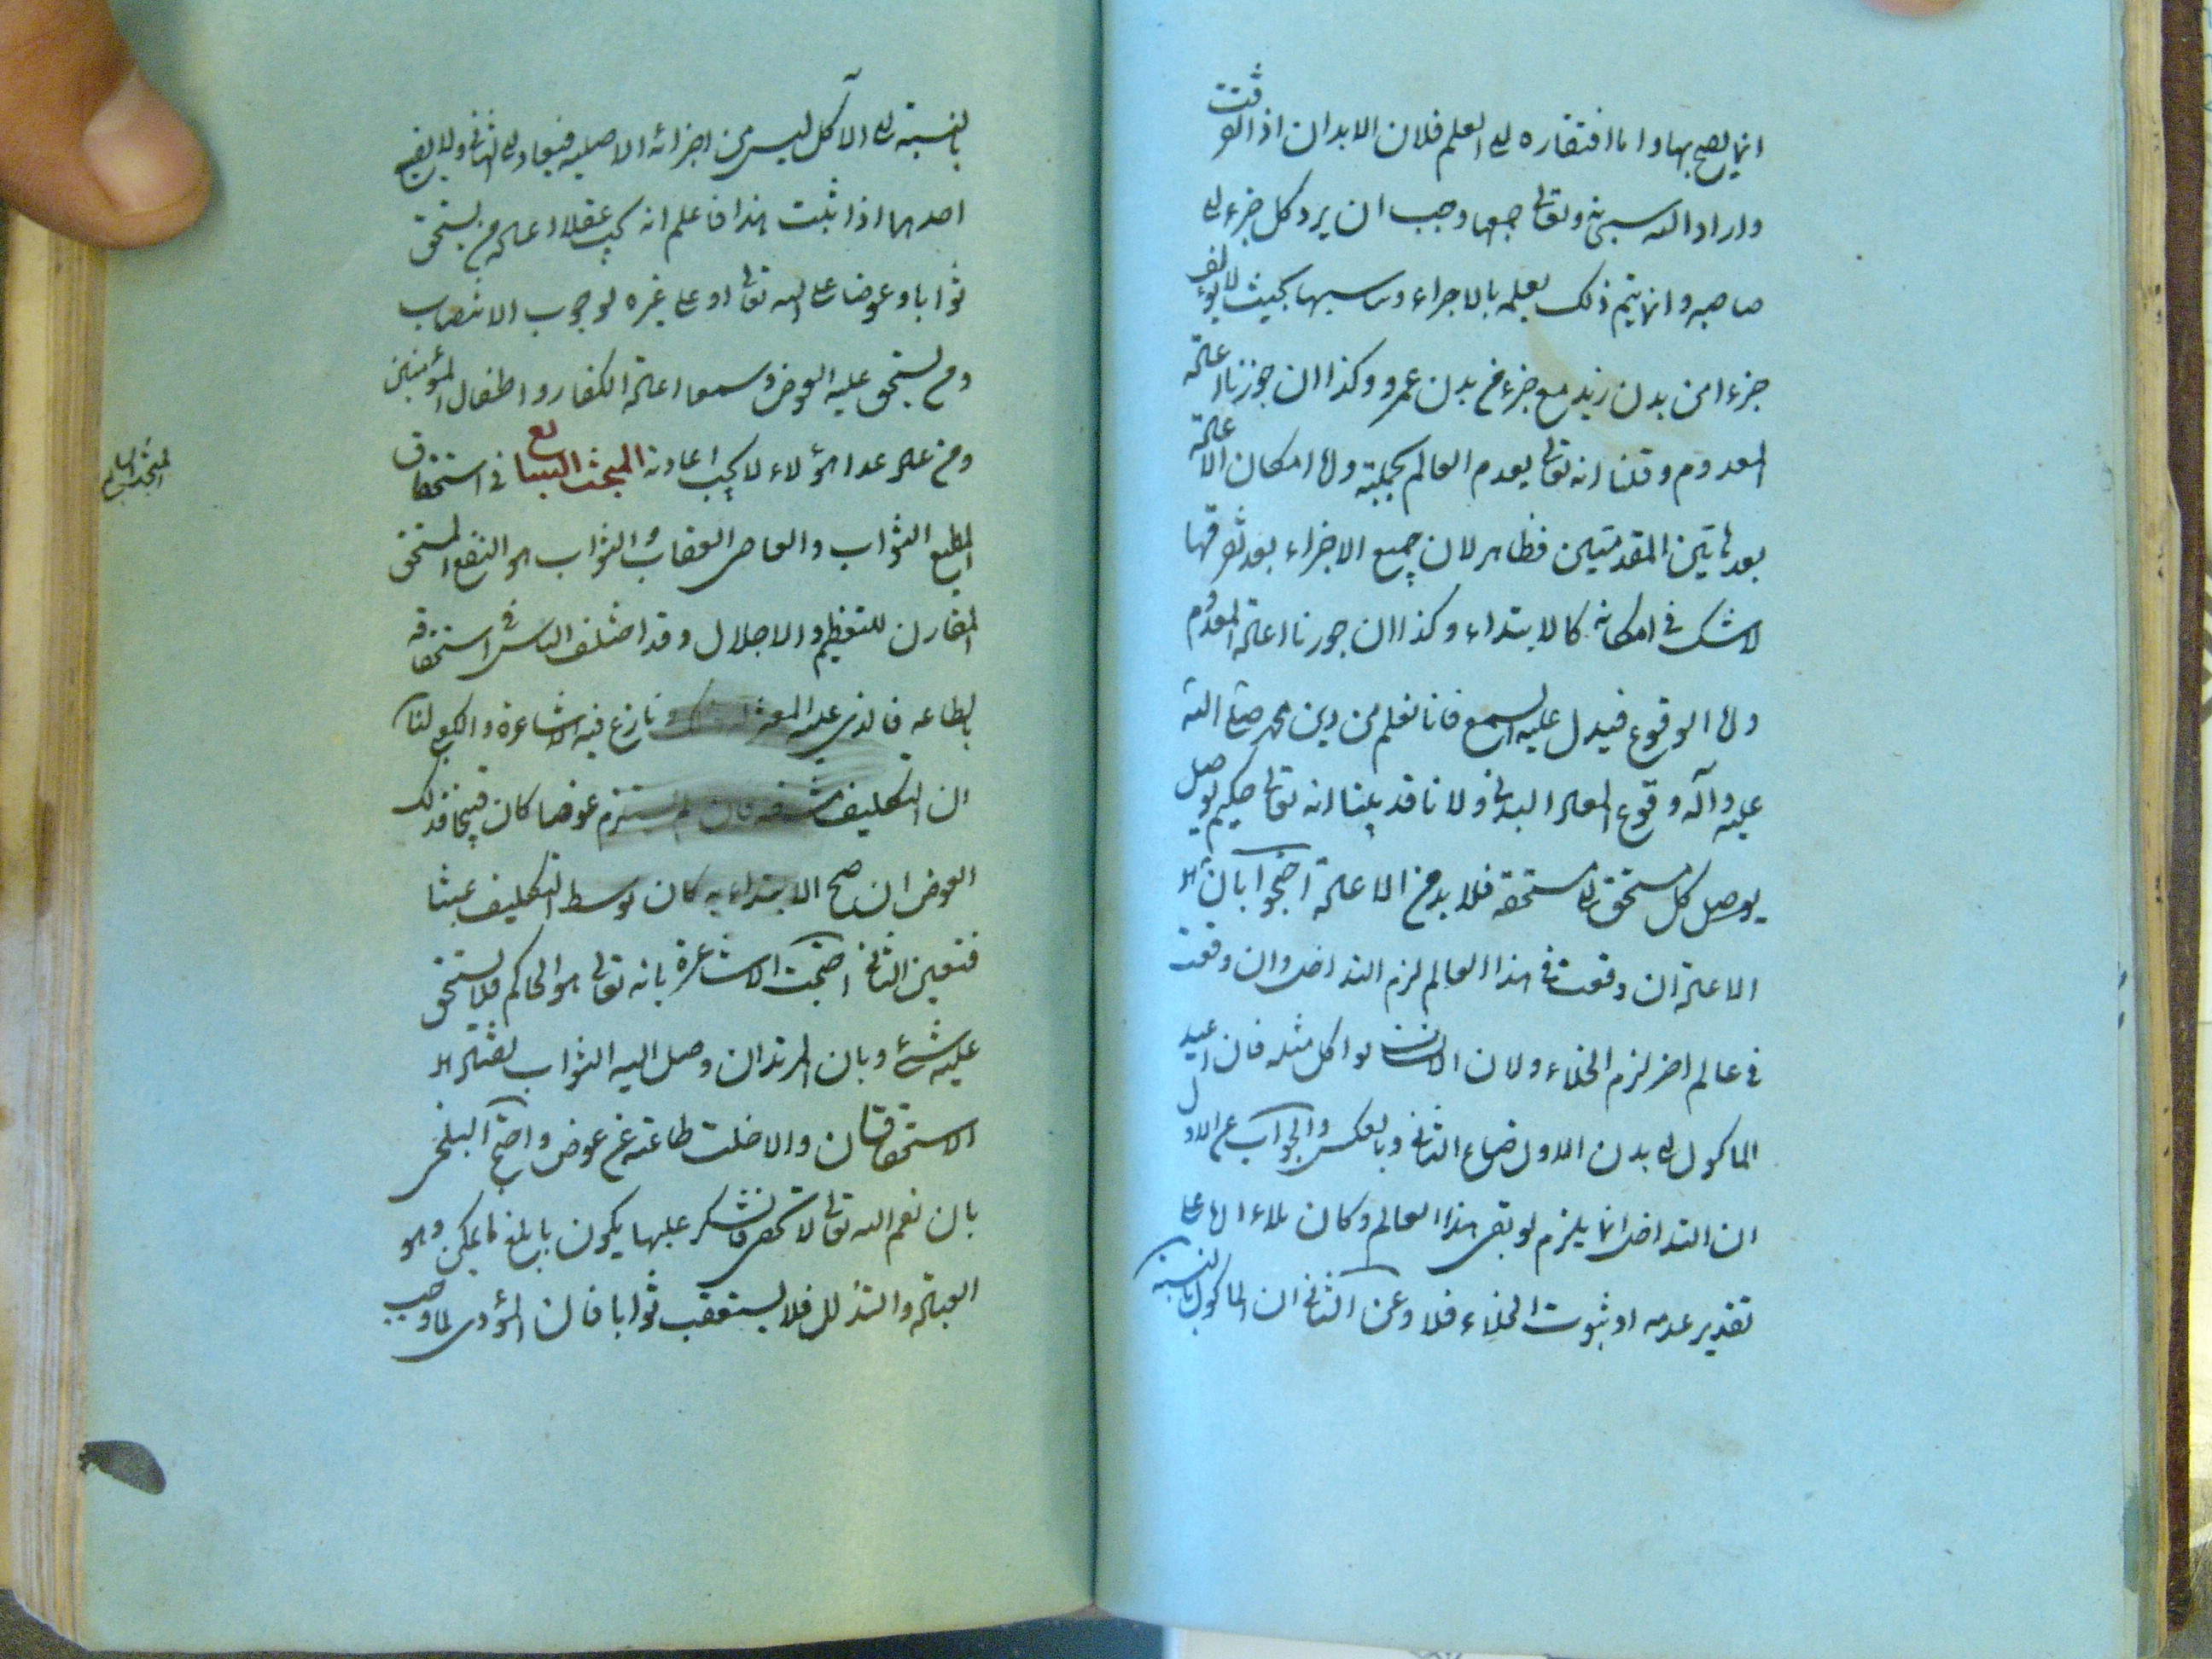 انما يصح بها واما افتقاره الى العلم فلان الابدان اذا تفرقت
واراد الله سبحانه وتعالى جمعها وجب ان يرد كل جزء الى
صاحبه وانما يتم ذلك بعلمه بالاجزاء وتناسبها بحيث لا يؤلف
جزءا من بدن زيد مع جزء من بدن عمرو وكذا ان جوزنا اعادة
المعدوم وقلنا انه تعالى يعدم العالم بجملته واما امكان الاعادة
بعد هاتين المقدمتين فظاهر لان جمع الاجزاء بعد تفرقها
لا شك في امكانه كالابتداء وكذا ان جوزنا اعادة المعدوم
واما الوقوع فيدل عليه السمع فانا نعلم من دين محمد صلى الله
عليه وآله وقوع المعاد البدني ولانا قد بينا انه تعالى حكيم يوصل
يوصل كل مستحق الى مستحقه فلا بد من الاعادة احتجوا بان
الاعادة ان وقعت في هذا العالم لزم التداخل وان وقعت
في عالم اخر لزم الخلاء ولان الانسان لو اكل مثله فان اعيد
الماكول الى بدن الاول ضاع الثاني وبالعكس والجواب عن الاول
ان التداخل انما يلزم لو بقي هذا العالم وكان ملاء اما على
تقدير عدمه او ثبوت الخلاء فلا وعن الثاني ان الماكول بالنسبة
بالنسبة الى الآكل ليس من اجزائه الاصلية فيعاد الى الثاني ولا يضيع
احدهما اذا ثبت هذا فاعلم انه يجب عقلا اعادة من يستحق
ثوابا او عوضا على الله تعالى او على غيره لوجوب الانتصاف
ومن يستحق عليه العوض وسمعا اعادة الكفار واطفال المؤمنين
ومن عدا هؤلاء لا يجب اعادته المبحث السابع في استحقاق
المبحث السابع
المطيع الثواب والعاصي العقاب والثواب هو النفع المستحق
المقارن للتعظيم والاجلال وقد اختلف الناس في استحقاقه
بالطاعة فالذي عليه المعتزلة ذلك ونازع فيه الاشاعرة والكعبي لنا
ان التكليف مشقة فان لم يستلزم عوضا كان قبيحا فذلك
العوض ان صح الابتداء به كان توسط التكليف عبثا
فتعين الثاني احتجت الاشاعرة بانه تعالى هو الحاكم فلا يستحق
عليه شئ وبان المرتد ان وصل اليه الثواب
الاستحقاقان والا خلت طاعته عن عوض واحتج البلخي
بان نعم الله تعالى لا تحصى فالشكر عليها يكون بابلغ ما يمكن وهو
العبادة والتذلل فلا يستعقب ثوابا فان المؤدى لما وجب